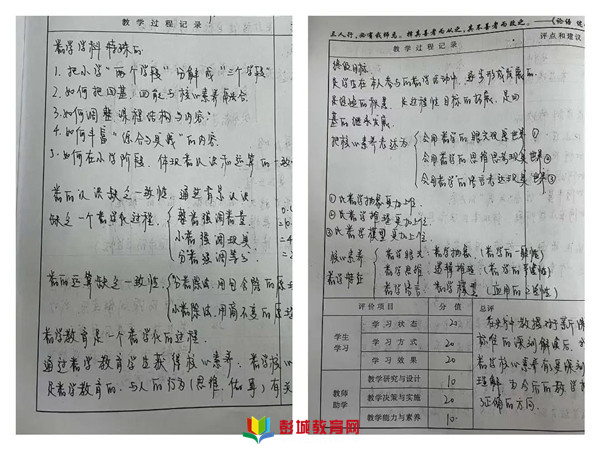 教学过程记录
数学学科特殊的
1. 把小学"两个学段"分解成"三个学段"
2. 如何把四基、四能与核心素养融合
3. 如何调整课程结构与内容
4. 如何丰富"综合与实践"的内容
5. 如何在小学阶段，体现数认识和运算的一致
数的认识缺乏一致性，通过背景认识
缺乏一个数学化过程.
整数强调数量
小数强调现实
分数强调等分
数的运算缺乏一致性.
分数除法，用包含除的原
小数除法，用商不变的原
数学教育是一个数学化的过程.
通过数学教育学生获得核心素养. 数学核心
是数学教育的，与人的行为（思维、估算）有关
三人行，必有我师焉。择其善者而从之，其不善者而改之。——《论语
教学过程记录
评点和建议
终极目标.
是学生在本人参与的数学活动中，逐步形成发展的.
是经验的积累. 是过程性目标的拓展，是四
基的继承发展.
把核心素养表述为
会用数学的眼光观察世界①
会用数学的思维思考现实世界②
会用数学的语言表达现实世界③
①比数学抽象更加上位.
②比数学推理更加上位.
③比数学模型更加上位.
核心素养
数学特征
数学眼光：数学抽象（数学的一般性）
数学思维 逻辑推理（数学的严谨性）
数学语言 数学模型（应用的广泛性）
评价项目
分值
总评
学生学习
学习状态 20
学习方式 20
学习效果 20
教师助学
教学研究与设计 10
教学决策与实施 20
教学能力与素养 10
标准的深刻解读后，
数学核心素养有更深刻
理解 为今后的教学
了正确的方向.
彭城教育网